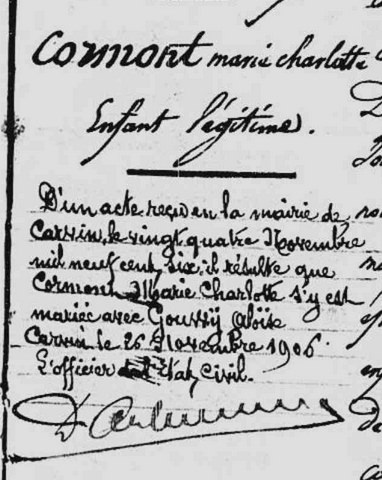 Cormont marie charlotte
Enfant légitime.
D'un acte reçu en la mairie de
Carvin, le vingt quatre Novembre
mil neuf cent six, il résulte que
Cormont Marie Charlotte s'y est
mariée avec Goussy Aloïse
Carvin le 26 Novembre 1906
L'officier de l'Etat Civil.